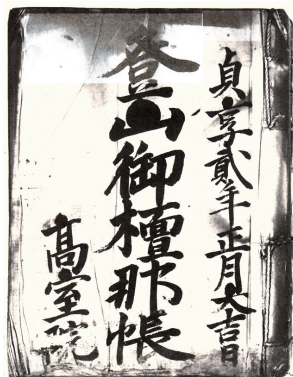 貞享貳年正月大吉日
登山御檀那帳
高室院